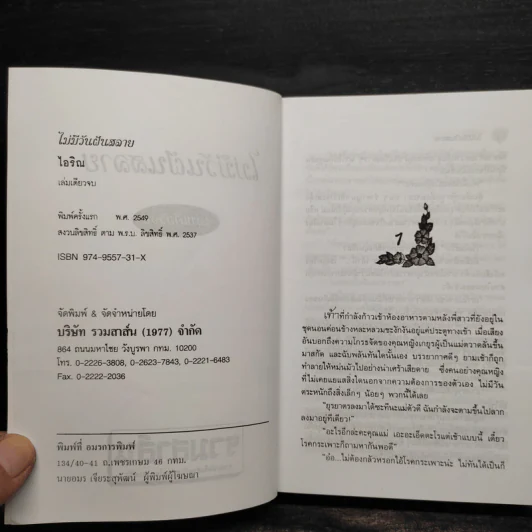 ไม่มีวันฝันสลาย
ไอริณ
เล่มเดียวจบ
พิมพ์ครั้งแรก พ.ศ. 2549
สงวนลิขสิทธิ์ ตาม พ.ร.บ. ลิขสิทธิ์ พ.ศ. 2537
ISBN 974-9557-31-X
จัดพิมพ์ & จัดจำหน่ายโดย
บริษัท รวมสาส์น (1977) จำกัด
864 ถนนมหาไชย วังบูรพา กทม. 10200
โทร. 0-2226-3808, 0-2623-7843, 0-2221-6483
Fax. 0-2222-2036
พิมพ์ที่ อมรการพิมพ์
134/40-41 ถ.เพชรเกษม 46 กทม.
นายอมร เจียระสุพัฒน์ ผู้พิมพ์ผู้โฆษณา
1
เท้าที่กำลังก้าวเข้าห้องอาหารตามหลังพี่สาวที่ยังอยู่ใน
ชุดนอนค่อนข้างหละหลวมชะงักงันอยู่แค่ประตูทางเข้า เมื่อเสียง
อันบอกถึงความโกรธจัดของคุณหญิงเกยูรผู้เป็นแม่ตวาดลั่นขึ้น
มาสกัด และฉับพลันทันใดนั้นเอง บรรยากาศดีๆ ยามเช้าก็ถูก
ทำลายให้หม่นมัวไปอย่างน่าเศร้าเสียดาย ซึ่งคนอย่างคุณหญิง
ที่ไม่เคยแยแสสิ่งใดนอกจากความต้องการของตัวเอง ไม่มีวัน
ตระหนักถึงสิ่งเล็กๆ น้อยๆ พวกนี้ได้เลย
"ยุรยาตรลงมาได้ซะทีนะแม่ตัวดี ฉันกำลังจะตามขึ้นไปลาก
ลงมาอยู่ทีเดียว!"
"อะไรอีกล่ะคะคุณแม่ เอะอะเอ็ดตะโรแต่เช้าแบบนี้ เดี๋ยว
โรคกระเพาะก็ถามหากันพอดี"
"อ๋อ...ไม่ต้องกลัวหรอกไอ้โรคกระเพาะน่ะ ไม่ทันได้เป็นก็